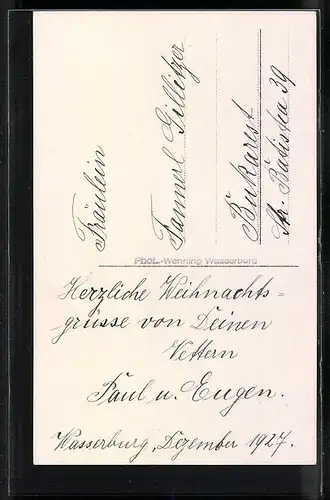 Fräulein
Fannerl Gillitzer
Bukarest
Str. Batistea 39
Phot. Wenning Wasserburg
Herzliche Weihnachts=
grüsse von Deinen
Vettern
Paul u. Eugen.
Wasserburg, Dezember 1927.